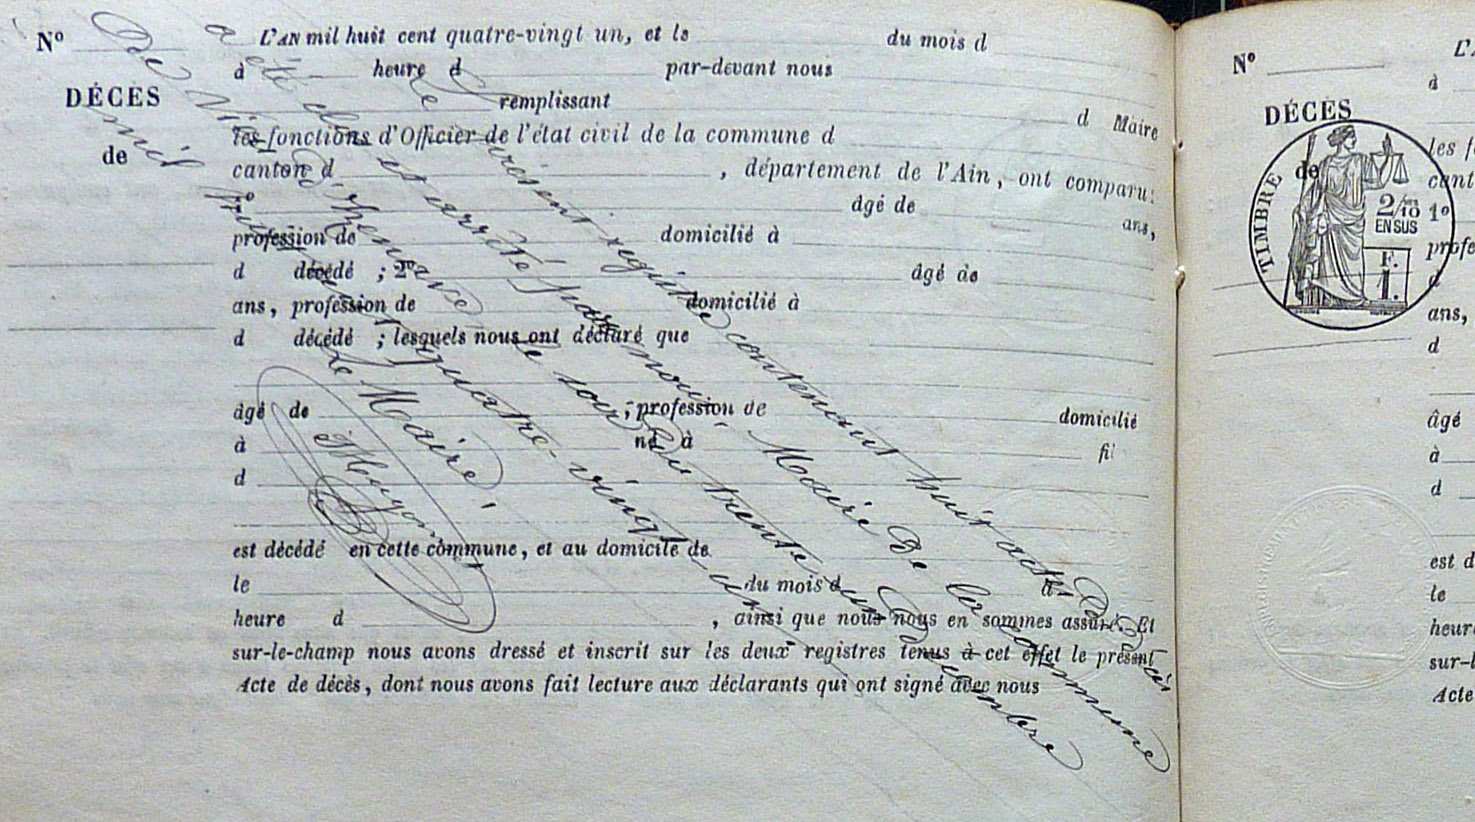 Nº
DÉCÈS
de
L'AN mil huit cent quatre-vingt un, et le du mois d
à heure d par-devant nous
remplissant d Maire
les fonctions d'Officier de l'état civil de la commune d
canton d , département de l'Ain, ont comparu:
1º âgé de ans,
profession de domicilié à
d décédé ; 2º âgé de
ans, profession de domicilié à
d décédé ; lesquels nous ont déclaré que
âgé de , profession de domicilié
à né à fil
d
est décédé en cette commune, et au domicile de
le du mois d à
heure d , ainsi que nous nous en sommes assuré. Et
sur-le-champ nous avons dressé et inscrit sur les deux registres tenus à cet effet le présent
Acte de décès, dont nous avons fait lecture aux déclarants qui ont signé avec nous
Le présent registre contenant huit actes de Décès
a été clos et arrêté par nous, Maire de la commune
de le soir du trente un Décembre
mil huit cent quatre-vingt-un
Le Maire,
Nº
DÉCÈS
de
TIMBRE
2/10
EN SUS
F.
1.
L'
à
les f
cant
1º
profe
d
ans,
d
âgé
à
d
est d
le
heure
sur-l
Acte